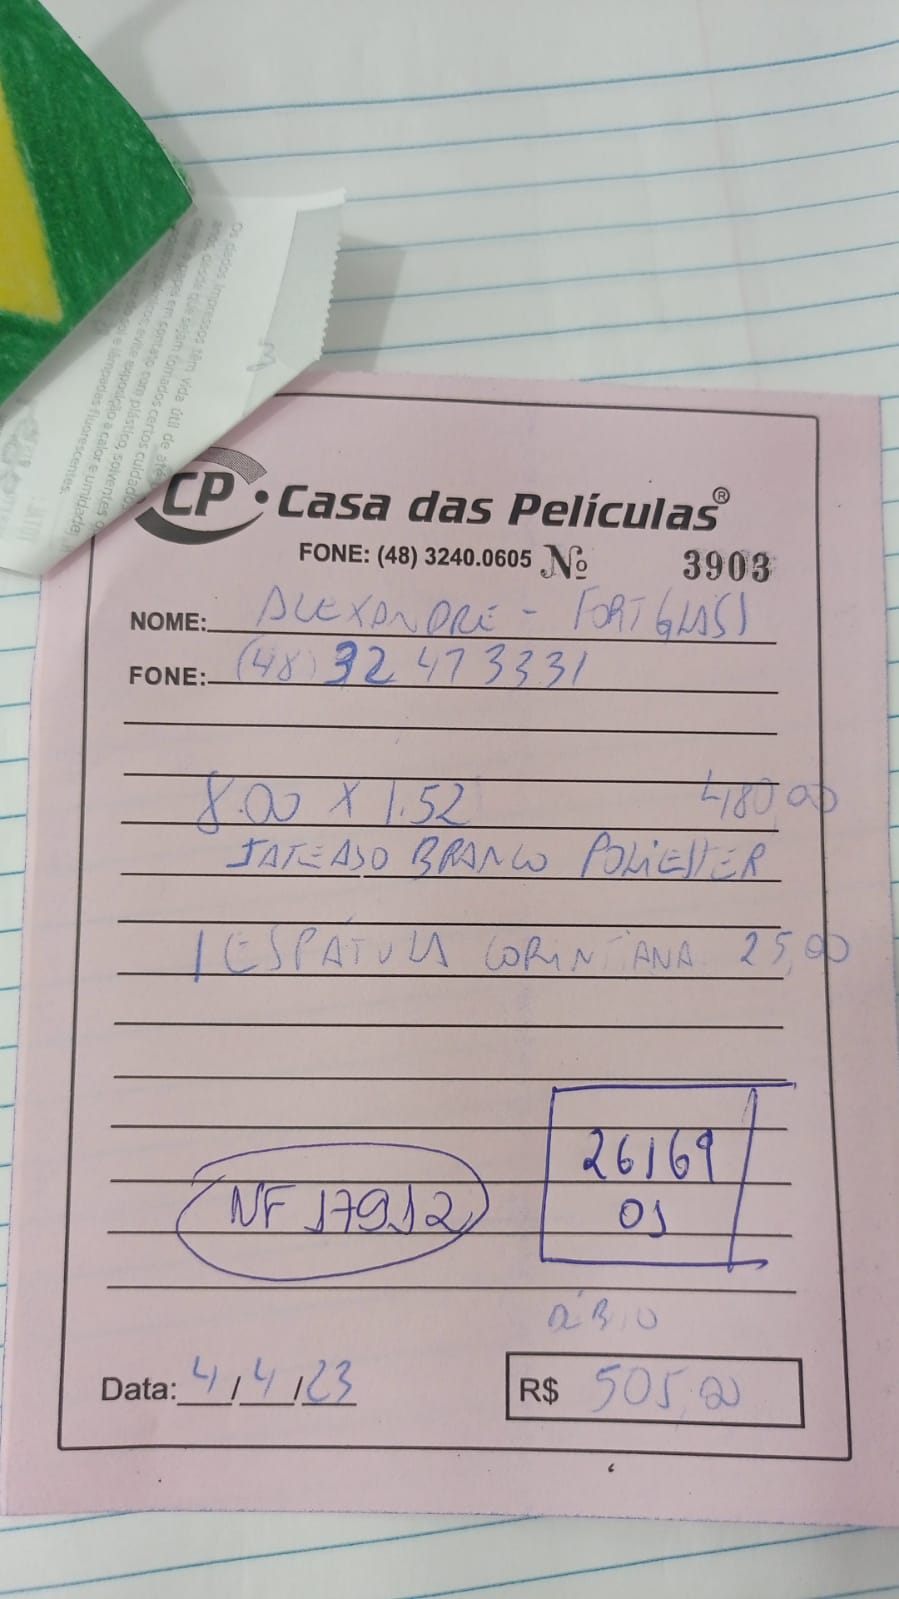 Os dados impressos têm vida útil de até
anos, desde que sejam tomados certos cuidados
evite exposição a calor e umidade
e lâmpadas fluorescentes.
CP
Casa das Películas®
FONE: (48) 3240.0605 Nº 3903
NOME: ALEXANDRE - FORTGLASS
FONE: (48) 32473331
8.00 X 1.52 480,00
JATEADO BRANCO POLIESTER
1 ESPÁTULA CORINTIANA 25,00
26169
01
NF 17912
Data: 4/4/23
R$ 505,00